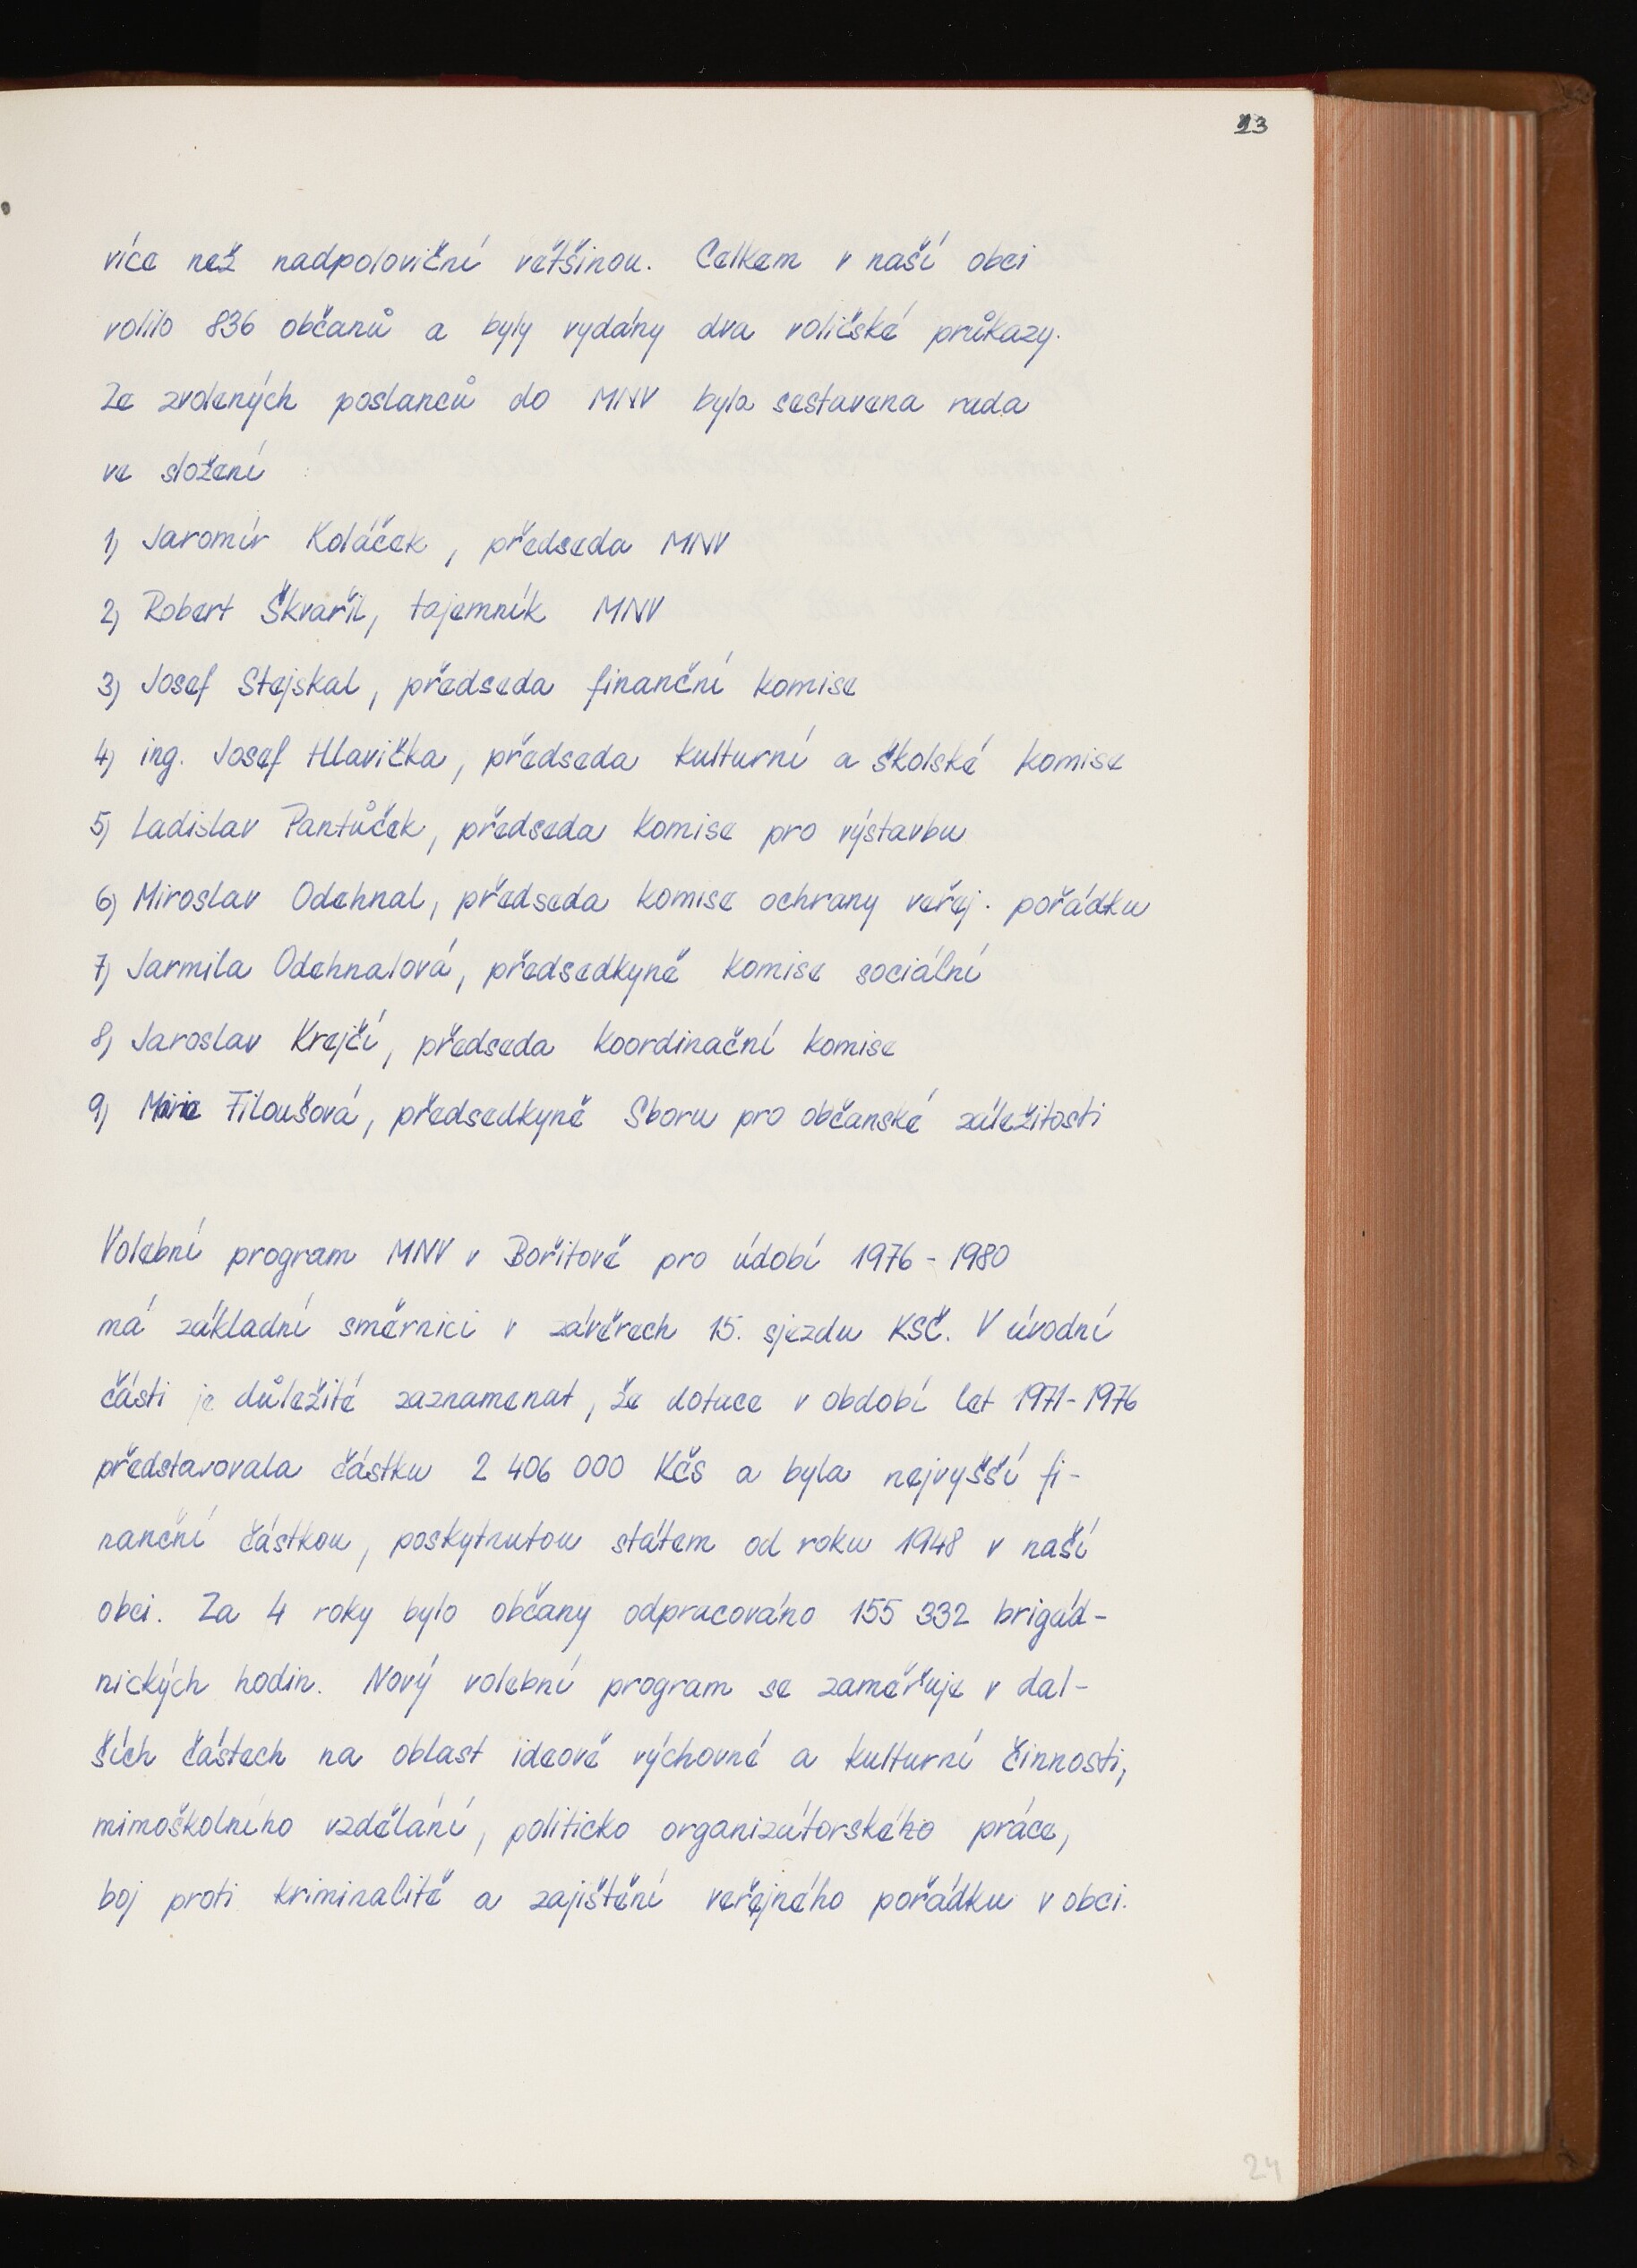 23
více než nadpoloviční většinou. Celkem v naší obci
volilo 836 občanů a byly vydány dva voličské průkazy.
Ze zvolených poslanců do MNV byla sestavena rada
ve složení
1) Jaromír Koláček, předseda MNV
2) Robert Škvařil, tajemník MNV
3) Josef Stejskal, předseda finanční komise
4) ing. Josef Hlavička, předseda kulturní a školské komise
5) Ladislav Pantůček, předseda komise pro výstavbu
6) Miroslav Odehnal, předseda komise ochrany veřej. pořádku
7) Jarmila Odehnalová, předsedkyně komise sociální
8) Jaroslav Krejčí, předseda koordinační komise
9) Marie Filoušová, předsedkyně Sboru pro občanské záležitosti
Volební program MNV v Bořitově pro údobí 1976 - 1980
má základní směrnici v závěrech 15. sjezdu KSČ. V úvodní
části je důležité zaznamenat, že dotace v období let 1971-1976
představovala částku 2 406 000 Kčs a byla nejvyšší fi-
nanční částkou, poskytnutou státem od roku 1948 v naší
obci. Za 4 roky bylo občany odpracováno 155 332 brigád-
nických hodin. Nový volební program se zaměřuje v dal-
ších částech na oblast ideově výchovné a kulturní činnosti,
mimoškolního vzdělání, politicko organizátorského práce,
boj proti kriminalitě a zajištění veřejného pořádku v obci.
24